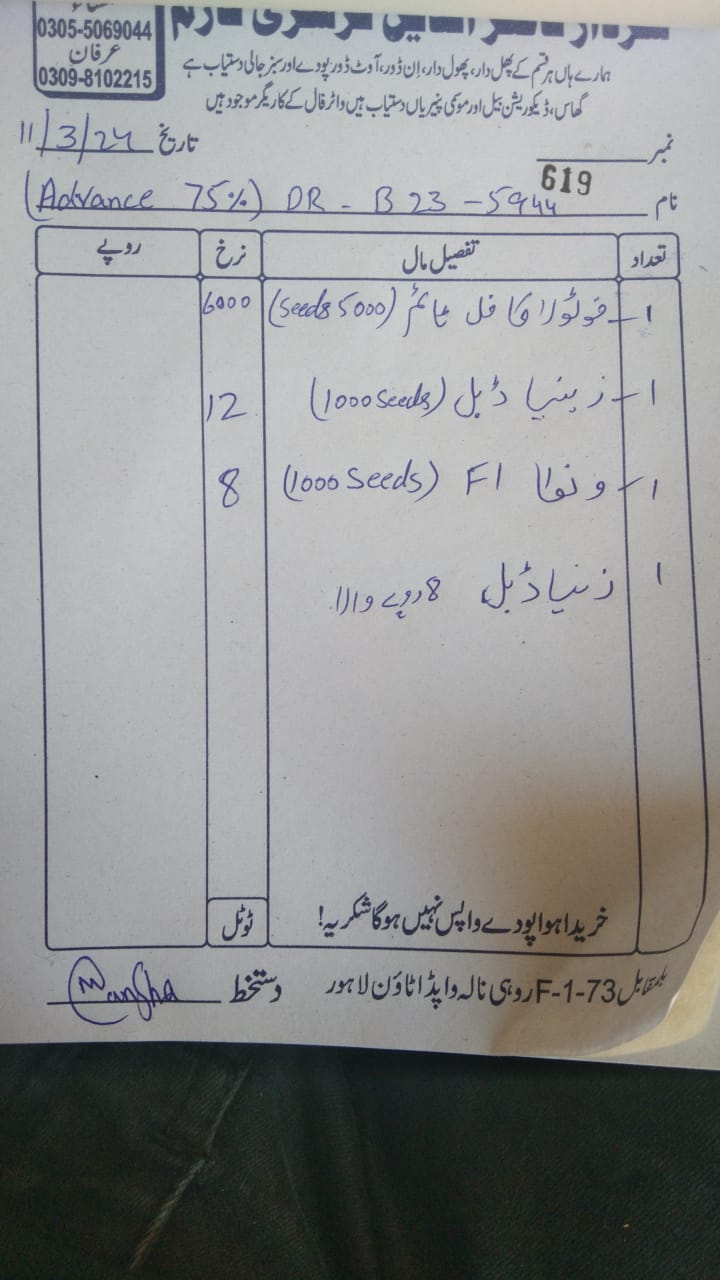 0305-5069044
عرفان
0309-8102215
ہمارے ہاں ہر قسم کے پھل دار، پھول دار، اِن ڈور، آوٹ ڈور پودے اور سبز جالی دستیاب ہے
گھاس، ڈیکوریشن بیل اور موسمی پنیریاں دستیاب ہیں واٹر فال کے کاریگر موجود ہیں
نمبر 619 تاریخ 11/3/24
نام (Advance 75%) DR - B 23 - 5944
تعداد تفصیل مال نرخ روپے
1 (Seeds 5000) 6000
1 زینیا ڈبل (1000 Seeds) 12
1 ونکا F1 (1000 Seeds) 8
1 زنیا ڈبل 8 روپے والا
خریدا ہوا پودے واپس نہیں ہوگا شکریہ! ٹوٹل
بالمقابل F-1-73 روہی نالہ واپڈا ٹاؤن لاہور دستخط Mansha